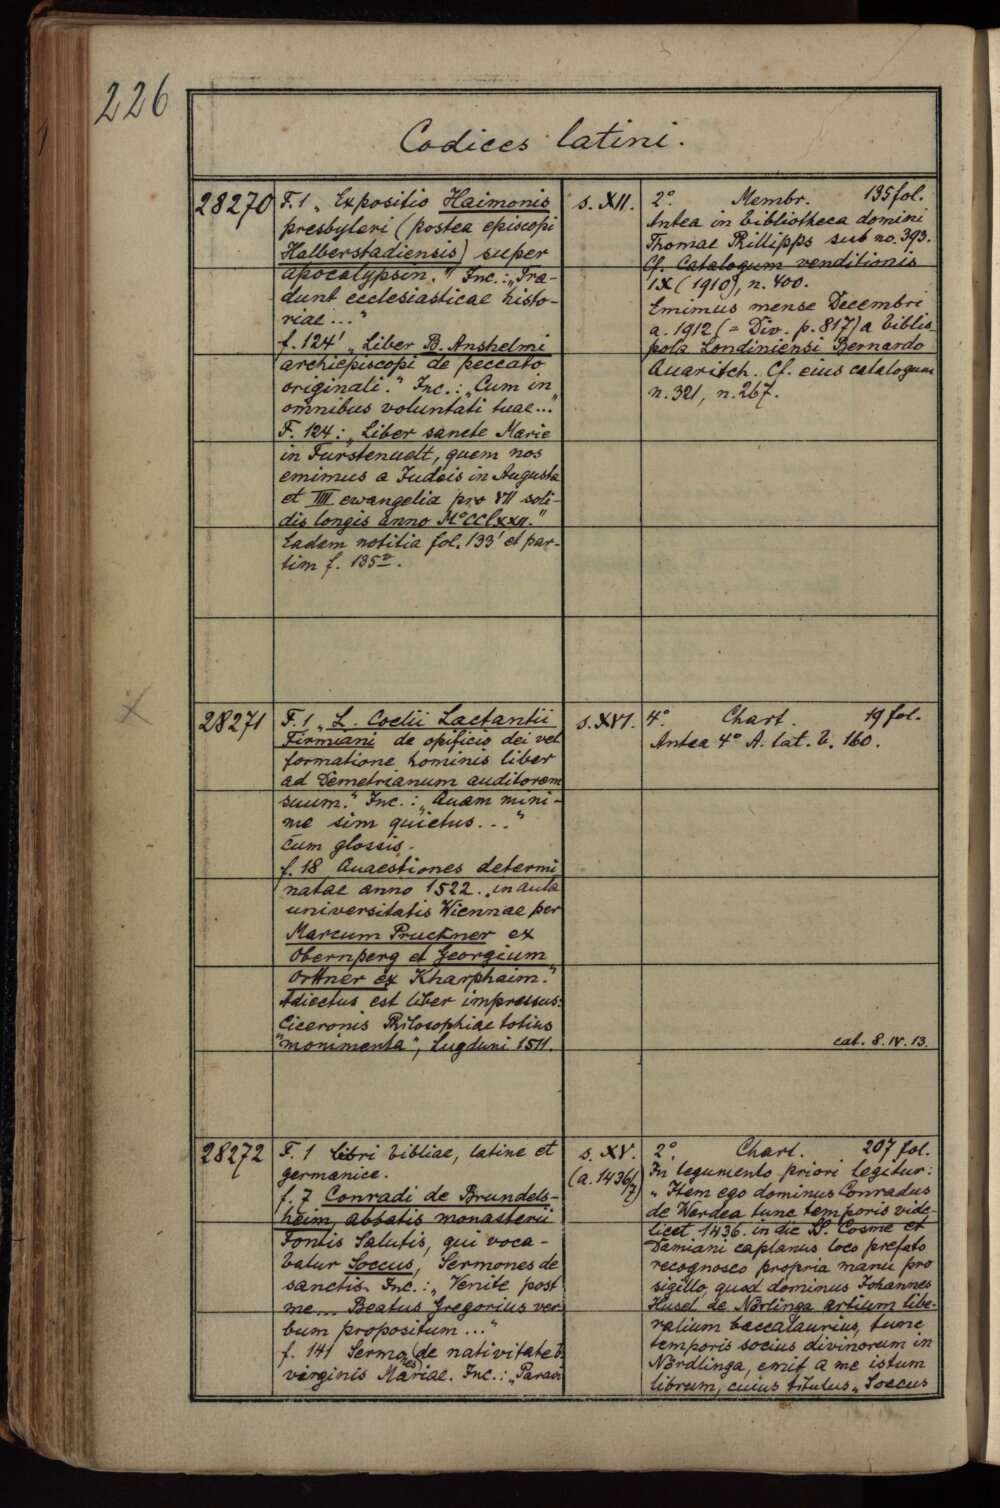 226
Codices latini.
28270
F. 1 „Expositio Haimonis
presbyteri (postea episcopi
Halberstadiensis) super
apocalypsin." Inc.: „Tra-
dunt ecclesiasticae histo-
riae..."
f. 124' „Liber B. Anshelmi
archiepiscopi de peccato
originali." Inc.: „Cum in
omnibus voluntati tuae..."
F. 124: „Liber sancte Marie
in Furstenuelt, quem nos
emimus a Iudeis in Augusta
et IIII ewangelia pro VII soli-
dis longis anno M°CClxxII."
Eadem notitia fol. 133' et par-
tim f. 135v.
s. XII.
2°. Membr. 135 fol.
Antea in bibliotheca domini
Thomae Phillipps sub no. 393.
Cf. Catalogum venditionis
IX (1910), n. 400.
Emimus mense Decembri
a. 1912 (= Div. p. 817) a biblio-
pola Londiniensi Bernardo
Quaritch. Cf. eius catalogum
n. 321, n. 267.
28271
F. 1 „L. Coelii Lactantii
Firmiani de opificio dei vel
formatione hominis liber
ad Demetrianum auditorem
suum." Inc.: „Quam mini-
me sim quietus..."
cum glossis.
f. 18 Quaestiones determi
natae anno 1522. „in aula
universitatis Wiennae per
Marcum Pruckner ex
Obernperg et Georgium
Orttner ex Kharphaim."
Adiectus est liber impressus:
Ciceronis Philosophiae totius
"monimenta", Lugduni 1511.
s. XVI.
4°. Chart. 19 fol.
Antea 4° A. lat. b. 160.
cat. 8. IV. 13.
28272
F. 1 libri bibliae, latine et
germanice.
f. 7 Conradi de Brundels-
heim, abbatis monasterii
Fontis Salutis, qui voca-
batur Soccus, Sermones de
sanctis. Inc.: „Venite post
me... Beatus Gregorius ver
bum propositum..."
f. 141 Sermones de nativitate b.
virginis Mariae. Inc.: „Paravi
s. XV.
(a. 1436/
7)
2°. Chart. 207 fol.
In tegumento priori legitur:
„Item ego dominus Conradus
de Werdea tunc temporis vide-
licet 1436. in die SS. Cosme et
Damiani caplanus loco prefato
recognosco propria manu pro
sigillo, quod dominus Johannes
Husel de Nörlinga artium libe-
ralium baccalaurius, tunc
temporis socius divinorum in
Nördlinga, emit a me istum
librum, cuius titulus „Soccus